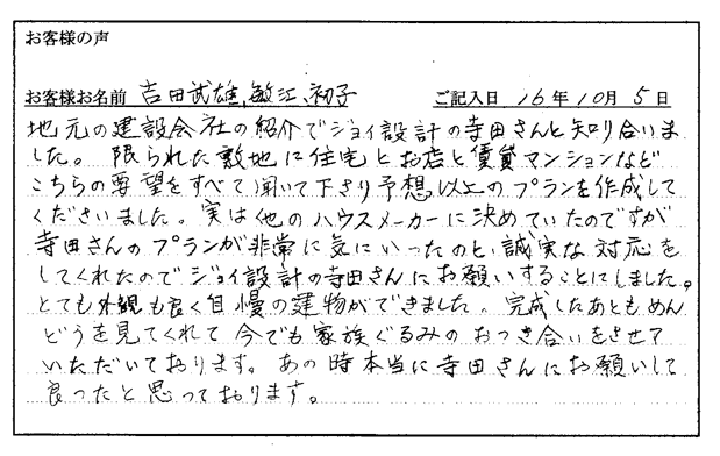 お客様の声
お客様お名前 吉田武雄、敏江、初子 ご記入日 16年10月5日
地元の建設会社の紹介でジョイ設計の寺田さんと知り合いま
した。 限られた敷地に住宅とお店と賃貸マンションなど
こちらの要望をすべて聞いて下さり予想以上のプランを作成して
くださいました。実は他のハウスメーカーに決めていたのですが
寺田さんのプランが非常に気にいったのと、誠実な対応を
してくれたのでジョイ設計の寺田さんにお願いすることにしました。
とても外観も良く自慢の建物ができました。完成したあともめん
どうを見てくれて今でも家族ぐるみのおつき合いをさせて
いただいております。あの時本当に寺田さんにお願いして
良ったと思っております。